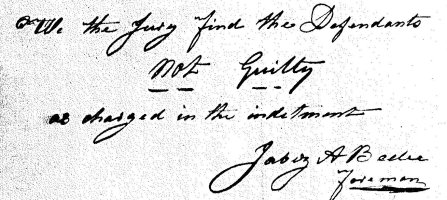 We the Jury find the Defendants
Not Guilty
as charged in the indctment
Jabez A B
Foreman